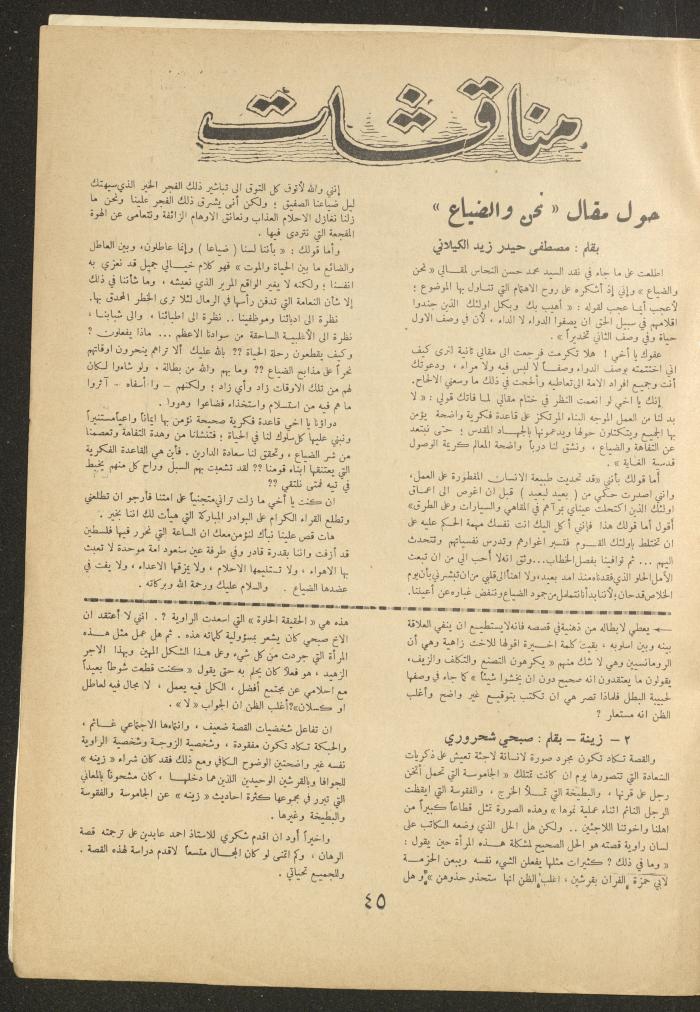 مناقشات
حول مقال « نحن والضياع »
بقلم : مصطفى حيدر زيد الكيلاني
اطلعت على ما جاء في نقد السيد محمد حسن النحاس لمقالي « نحن
والضياع » وإني إذ أشكره على روح الاهتمام التي تناول بها الموضوع ؛
لأعجب أيما عجب لقوله : « أهيب بك وبكل اولئك الذين جندوا
اقلامهم في سبيل الحق ان يصفوا الدواء لا الداء ، لأن في وصف الاول
حياة وفي وصف الثاني تخديراً » .
عفوك يا أخي ! هلا تكرمت فرجعت الى مقالي ثانية لترى كيف
اني اختتمته بوصف الدواء وصفاً لا لبس فيه ولا مراء ، ودعوتك
أنت وجميع أفراد الامة الى تعاطيه وألححت في ذلك ما وسعني الالحاح.
إنك يا اخي لو انعمت النظر في ختام مقالي لما فاتك قولي : « لا
بد لنا من العمل الموجه البناء المرتكز على قاعدة فكرية واضحة يؤمن
بها الجميع ويتكتلون حولها ويدعونها بالجهاد المقدس ؛ حتى نبتعد
عن التفاهة والضياع ، ونشق لنا درباً واضحة المعالم كريمة الوصول
قدسية الغاية » .
أما قولك بأنني «قد تحديت طبيعة الانسان المفطورة على العمل،
وانني اصدرت حكمي من ( بعيد لبعيد ) قبل ان اغوص الى اعماق
اولئك الذين اكتحلت عيناي بمرآهم في المقاهي والسيارات وعلى الطرق»
أقول أما قولك هذا فإنني أكل اليك انت نفسك مهمة الحكم عليه على
ان تختلط بأولئك القوم فتسبر اغوارهم وتدرس نفسياتهم وتتحدث
اليهم ... ثم توافينا بفصل الخطاب...وثق انه لا أحب الي من ان تبعث
الأمل الحلو الذي فقدناه منذ امد بعيد، ولا اهنأ الى قلبي من ان تبشرني بأن يوم
الخلاص قد حان ، لأننا بدأنا نتململ من جمود الضياع وننفض غباره عن أعيننا.
إنني والله لأتوق كل التوق الى تباشير ذلك الفجر الخير الذي سيهتك
ليل ضياعنا الصفيق ؛ ولكن أنى يشرق ذلك الفجر علينا ونحن ما
زلنا نغازل الاحلام العذاب ونعانق الاوهام الزائفة ونتعامى عن الهوة
المفجعة التي نتردى فيها .
وأما قولك : « بأننا لسنا ( ضياعا ) وإنما عاطلون، وبين العاطل
والضائع ما بين الحياة والموت » فهو كلام خيالي جميل قد نعزي به
انفسنا ؛ ولكنه لا يغير الواقع المرير الذي نعيشه ، وما شأننا في ذلك
إلا شأن النعامة التي تدفن رأسها في الرمال لئلا ترى الخطر المحدق بها.
نظرة الى ادبائنا وموظفينا .. نظرة الى اطبائنا ، والى شبابنا ،
نظرة الى الأغلبية الساحقة من سوادنا الاعظم ... ماذا يفعلون ؟
وكيف يقطعون رحلة الحياة ؟؟ بالله عليك ألا تراهم ينحرون اوقاتهم
نحراً على مذابح الضياع ؟؟ وما بهم والله من بطالة ، ولو شاءوا لكان
لهم من تلك الاوقات زاد وأي زاد ؛ ولكنهم – وا أسفاه – آثروا
ما هم فيه من استسلام واستخذاء فضاعوا وهووا .
دواؤنا يا اخي قاعدة فكرية صحيحة نؤمن بها ايماناً واعياً مستنيراً
ونبني عليها كل سلوك لنا في الحياة ؛ فتنتشلنا من وهدة التفاهة وتعصمنا
من شر الضياع ، وتحقق لنا سعادة الدارين. فأين هي القاعدة الفكرية
التي يعتنقها ابناء قومنا ؟؟ لقد تشعبت بهم السبل وراح كل منهم يخبط
في تيه فمتى نلتقي ؟؟
ان كنت يا أخي ما زلت تراني متجنياً على امتنا فأرجو ان تطلعني
وتطلع القراء الكرام على البوادر المباركة التي هيأت لك اننا بخير .
هات قص علينا نبأك لنؤمن معك ان الساعة التي نحرر فيها فلسطين
قد أزفت واننا بقدرة قادر وفي طرفة عين سنعود امة موحدة لا تعبث
بها الاهواء ، ولا تستليمها الاحلام ، ولا يمزقها الاعداء ، ولا يفت في
عضدها الضياع . والسلام عليك ورحمة الله وبركاته .
← يعطي لابطاله من ذهنيته في قصصه فانه لا يستطيع ان ينفي العلاقة
بينه وبين اسلوبه ، بقيت كلمة اخيرة اقولها للاخت زاهية وهي أن
الرومانسيين وهي لا شك منهم « يكرهون التصنع والتكلف والزيف،
يقولون ما يعتقدون انه صحيح دون ان يخشوا شيئاً » كما جاء في وصفها
لحبيبة البطل فلماذا تصر هي ان تكتب بتوقيع غير واضح وأغلب
الظن انه مستعار ؟
٢ – زينة – بقلم : صبحي شحروري
والقصة تكاد تكون مجرد صورة لانسانة لاجئة تعيش على ذكريات
السعادة التي تتصورها يوم ان كانت تمتلك « الجاموسة التي تحمل أثخن
رجل على قرنها ، والبطيخة التي تملأ الخرج ، والفقوسة التي ايقظت
الرجل النائم اثناء عملية نموها » وهذه الصورة تمثل قطاعاً كبيراً من
اهلنا واخوتنا اللاجئين .. ولكن هل الحل الذي وضعه الكاتب على
لسان راوية قصته هو الحل الصحيح لمشكلة هذه المرأة حين يقول :
« وما في ذلك ؟ كثيرات مثلها يفعلن الشيء نفسه ويبعن الحزمة
لأبي حمزة الفران بقرشين ، اغلب الظن انها ستحذو حذوهن » و هل
هذه هي « الحقيقة الحلوة » التي اسعدت الراوية ؟ . انني لا أعتقد ان
الاخ صبحي كان يشعر بمسؤولية كلماته هذه . ثم هل عمل مثل هذه
المرأة التي جردت من كل شيء وعلى هذا الشكل المهين وبهذا الاجر
الزهيد ، هو فعلا كان يحلم به حتى يقول « كنت قطعت شوطاً بعيداً
مع احلامي عن مجتمع أفضل ، الكل فيه يعمل ، لا مجال فيه لعاطل
او كسلان»؟ أغلب الظن ان الجواب « لا » .
ان تفاعل شخصيات القصة ضعيف ، وانتماءها الاجتماعي غائم ،
والحبكة تكاد تكون مفقودة ، وشخصية الزوجة وشخصية الراوية
نفسه غير واضحتين الوضوح الكافي ومع ذلك فقد كان شراء « زينه »
للجوافا وبالقرشين الوحيدين اللذين هما دخلها ، كان مشحوناً بالمعاني
التي تبرر في مجموعها كثرة احاديث « زينه » عن الجاموسة والفقوسة
والبطيخة وغيرها .
واخيراً أود ان اقدم شكري للاستاذ احمد عابدين على ترجمته قصة
الرهان ، وكم اتمنى لو كان المجال متسعاً لاقدم دراسة لهذه القصة .
وللجميع تحياتي .
٤٥